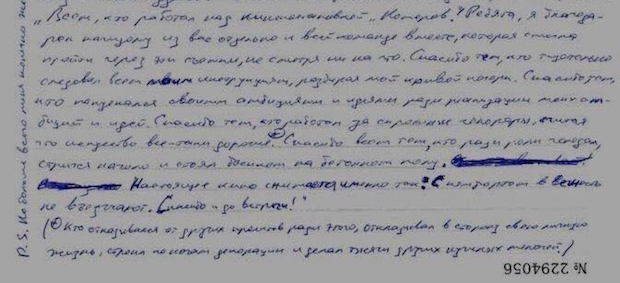 „Всем, кто работал над кинокартиной „ ". Ребята, я благода-
рен каждому из вас отдельно и всей команде вместе, которая смогла
пройти через эти съемки, не смотря ни на что. Спасибо тем, кто тщательно
следовал всем моим инструкциям, разбирая мой кривой почерк. Спасибо тем,
кто поступался своими амбициями и идеями ради реализации моих ам-
биций и идей. Спасибо тем, кто работал за скромные гонорары, считая
что искусство все-таки дороже. Спасибо всем тем, кто ради роли голодал,
стригся налысо и стоял босиком на бетонном полу.
Настоящее кино снимается именно так! С комфортом в Вечность
не въезжают. Спасибо и до встречи!"
( Кто отказывался от других проектов ради этого, откладывал в сторону свою личную
жизнь, строил по ночам декорации и делал тысячи других нужных мелочей.)
P.S. Но больше всего меня конечно же
№ 2294056